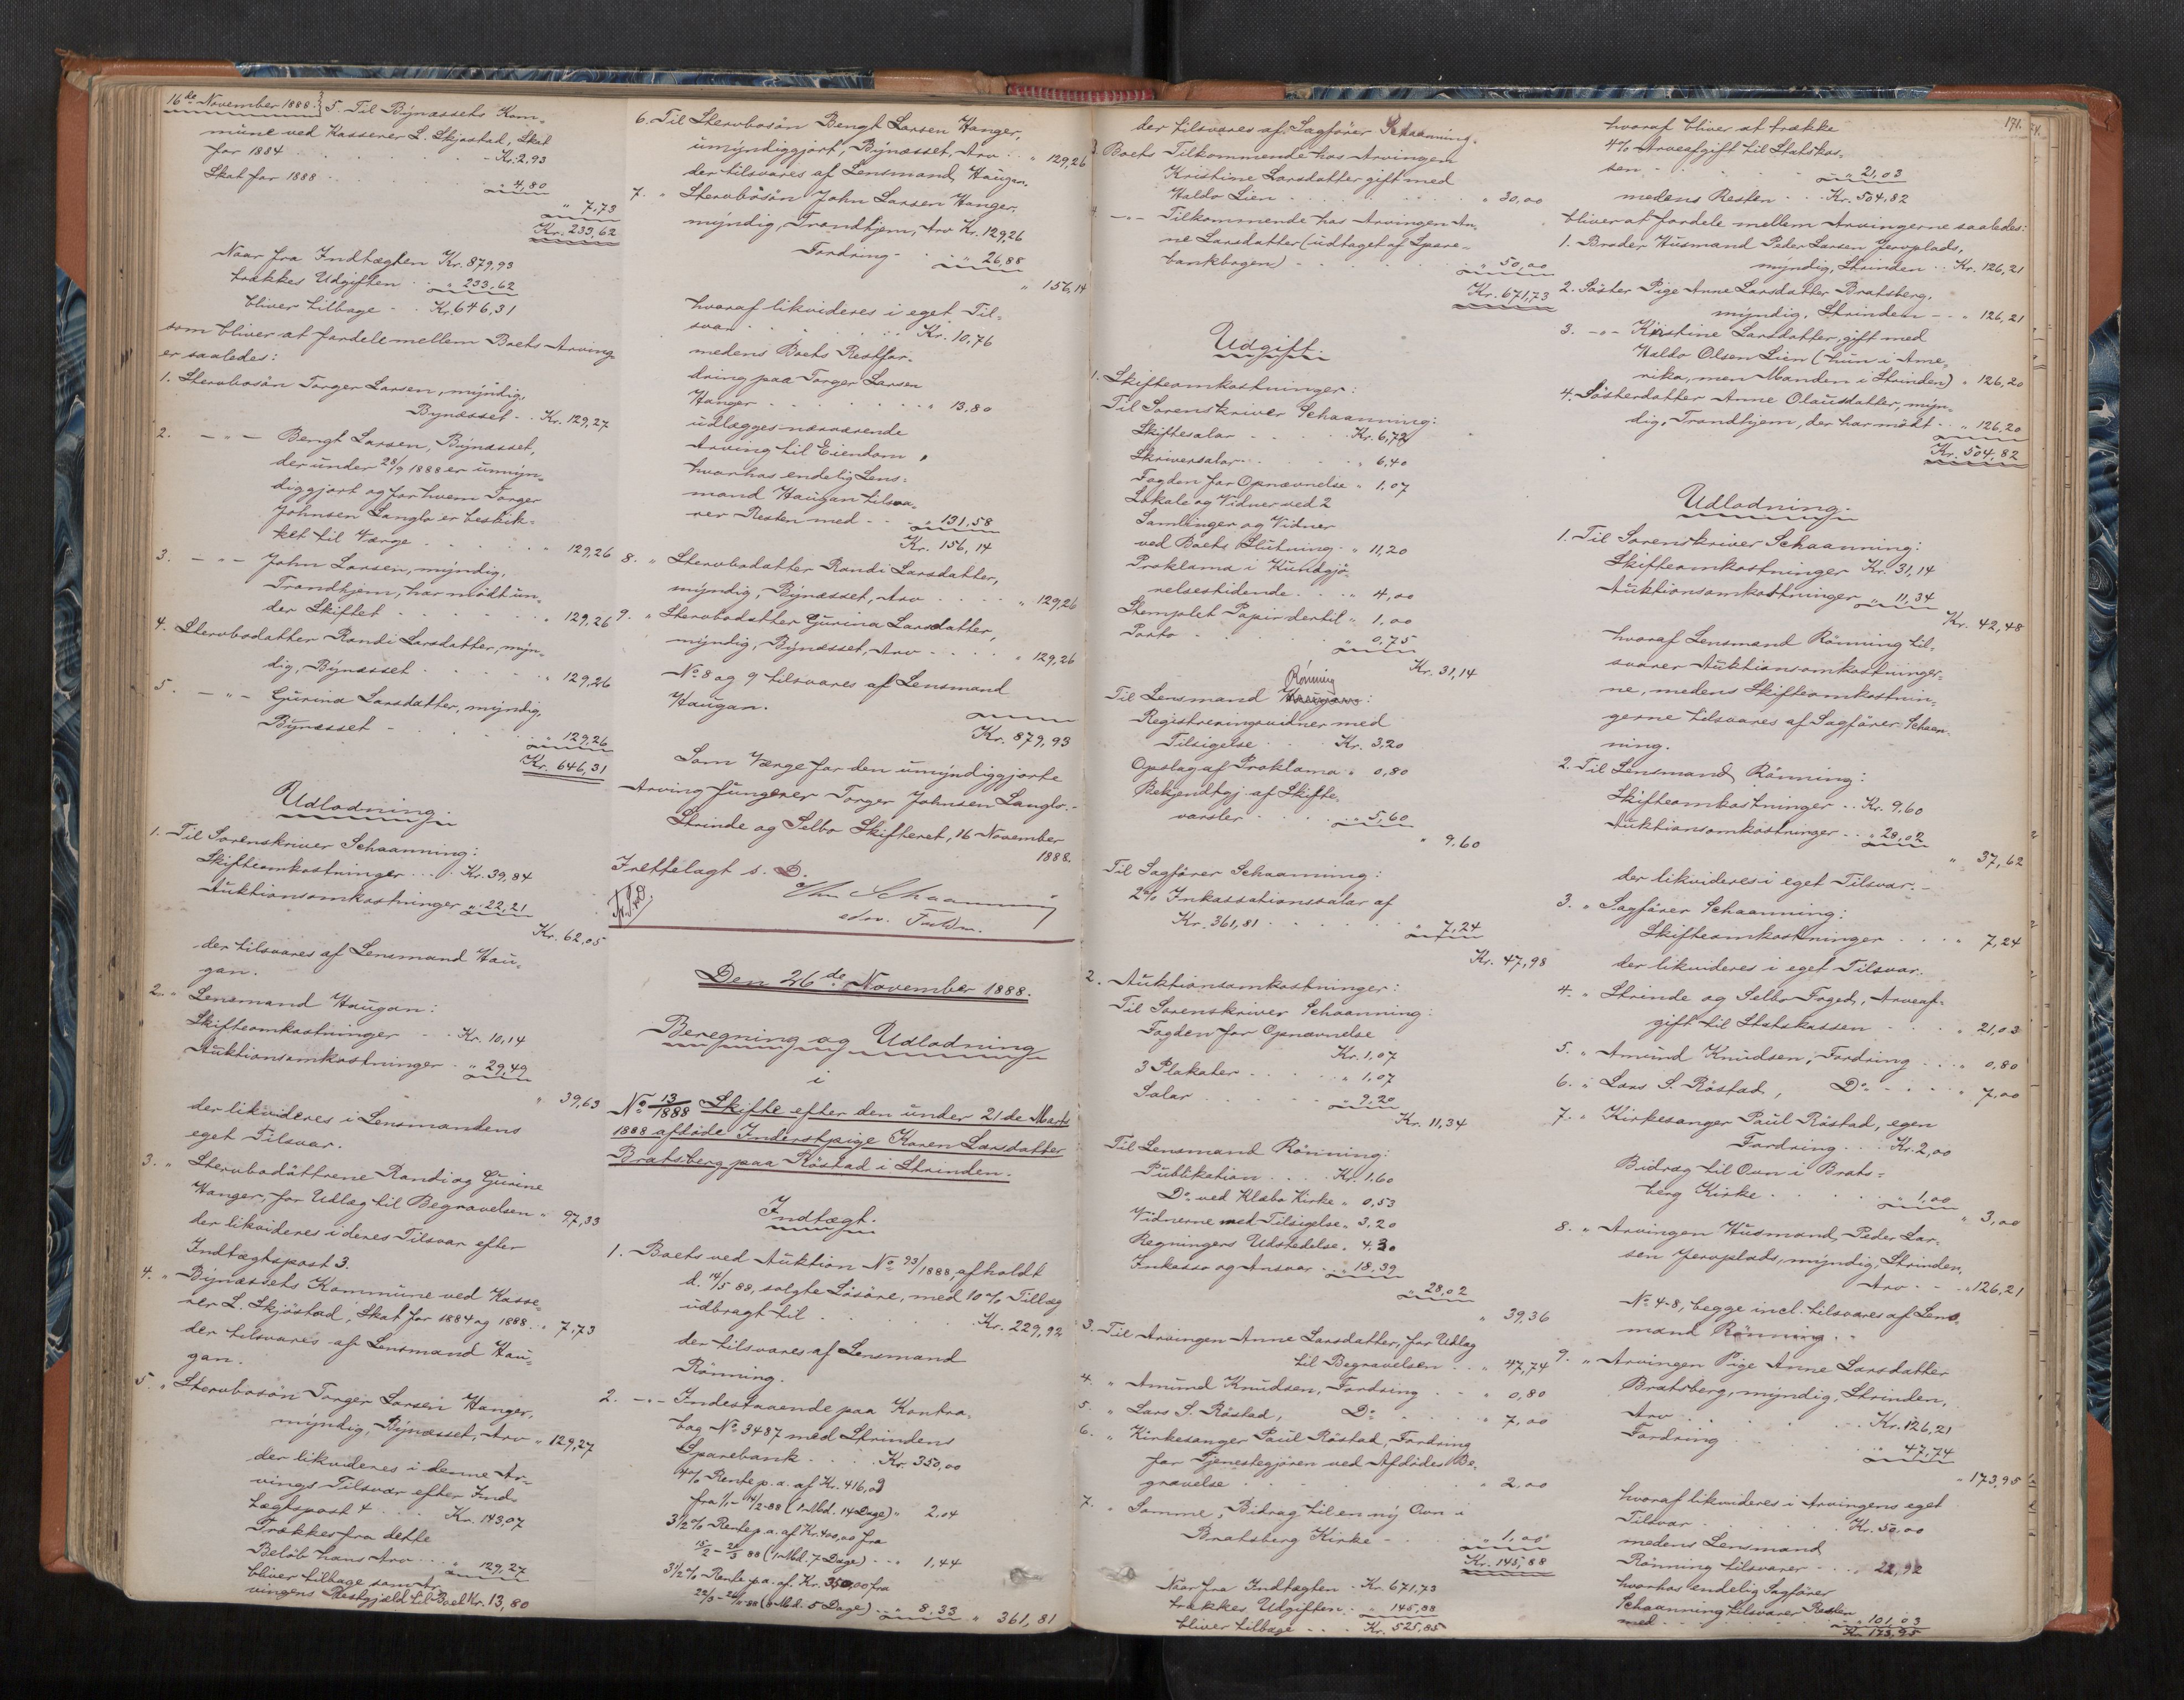 16de November 1888.} 5. Til Býnæssets Kom-
mune ved Kasserer L. Skjøstad, Skat
for 1884 . . . . . . - Kr. 2.93
Skat for 1888 . . . . . . " 4,80
" 7,73
Kr. 233,62
Naar fra Indtægten Kr. 879,93
trækkes Udgiften . . " 233,62
bliver tilbage - . Kr. 646,31
som bliver at fordele mellem Boets Arving-
er saaledes:
1. Stervbosön Torger Larsen, mýndig,
Bynæsset - . Kr. 129,27
2. - " - Bengt Larsen, Býnæsset,
der under 28/9 1888 er umýn-
diggjort og for hvem Torger
Johnsen Langlo er beskik-
ket til Værge . . . . . " 129,26
3. - " - John Larsen, mýndig,
Trondhjem, har mödt un-
der Skiftet . . . . . " 129,26
4. Stervbodatter Randi Larsdatter, mýn-
dig, Býnæsset . . . . . " 129,26
5. - " - Gurina Larsdatter, mýndig,
Býnæsset - . . . . . " 129,26
Kr. 646,31
Udlodning.
1. Til Sorenskriver Schaanning:
Skifteomkostninger . . . Kr. 39,84
Auktionsomkostninger " 22,21
Kr. 62,05
der tilsvares af Lensmand Hau-
gan.
2. " Lensmand Haugan:
Skifteomkostninger - . Kr. 10,14
Auktionsomkostninger . " 29,49
" 39,63
der likvideres i Lensmandens
eget Tilsvar.
3. " Stervbodöttrene Randi og Gurine
Hanger, for Udlæg til Begravelsen " 97,33
der likvideres i deres Tilsvar efter
Indtægtspost 3.
4. " Býnæssets Kommune ved Kasse-
rer L. Skjöstad, Skat for 1884 og 1888 . " 7,73
der tilsvares af Lensmand Hau-
gan.
5. " Stervbosön Torger Larsen Hanger,
mýndig, Býnæsset, Arv " 129,27
der likvideres i denne Ar-
vings Tilsvar efter Ind-
tægtspost 4 . . . Kr. 143,07
Trækkes fra dette
Belöb hans Arv . . . " 129,27
bliver tilbage som Ar-
vingens Restgjæld til Boet Kr. 13,80
6. Til Stervbosön Bengt Larsen Hanger,
umýndiggjort, Býnæsset, Arv . " 129,26
der tilsvares af Lensmand Haugan.
7. " Stervbosön John Larsen Hanger,
mýndig, Trondhjem, Arv Kr. 129,26
Fordring - . . " 26,88
" 156,14
hvoraf likvideres i eget Til-
svar . . . . . . Kr. 10,76
medens Boets Restfor-
dring paa Torger Larsen
Hanger . . . . . . " 13,80
udlægges nærværende
Arving til Eiendom,
hvorhos endelig Lens-
mand Haugan tilsva-
rer Resten med - . . " 131,58
Kr. 156,14
8. " Stervbodatter Randi Larsdatter,
mýndig, Býnæsset, Arv . . . . " 129,26
9. " Stervbodatter Gurina Larsdatter,
mýndig, Býnæsset, Arv . . . . " 129,26
No 8 og 9 tilsvares af Lensmand
Haugan.
Kr. 879,93
Som Værge for den umýndiggjorte
Arving fungerer Torger Johnsen Langlo.-
Strinde og Selbo Skifteret, 16 November
1888.
Irettelagt s. D.
Schaanning
Den 26de November 1888.
Beregning og Udlodning
i
No 13/1888 Skifte efter den under 21de Marts
1888 afdöde Inderstpige Karen Larsdatter
Bratsberg paa Röstad i Strinden.
Indtægt.
1. Boets ved Auktion No 93/1888, afholdt
d. 14/5 88, solgte Lösöre, med 10% Tillæg
udbragt til . . . . . . Kr. 229,92
der tilsvares af Lensmand
Rönning.
2. - " - Indestaaende paa Kontra-
bog No 3487 med Strindens
Sparebank . . . . Kr. 350,00
4% Rente p. a. af Kr. 416,00
fra 1/1 - 14/2 88 (1 Md. 14 Dage) " 2.04
3 1/2% Rente p. a. af Kr. 400,00 fra
15/2 - 21/3 88 (1 Md. 7 Dage) - . " 1,44
3 1/2% Rente p. a. af Kr. 350,00 fra
22/3 - 26/11 88 (8 Md. 5 Dage) . . " 8.33 " 361,81
171.
der tilsvares af Sagförer Schaanning.
3. Boets Tilkommende hos Arvingen
Kristine Larsdatter gift med
Haldo Lien . . . . . . . " 30,00
4. - " - Tilkommende hos Arvingen An-
ne Larsdatter (udtaget af Spare-
bankbogen) . . . . . . " 50,00
Kr. 671,73
Udgift.
1. Skifteomkostninger:
Til Sorenskriver Schaanning:
Skiftesalar . . . . . Kr. 6,72
Skriversalar . . . . . " 6,40
Fogden for Opnævnelse " 1,07
Lokale og Vidner ved 2
Samlinger og Vidner
ved Boets Slutning . " 11,20
Proklama i Kundgjö-
relsestidende . . . " 4,00
Stemplet Papir dertil " 1,00
Porto . . . . . . " 0,75
Kr. 31,14
Rönning
Til Lensmand Haugan:
Registreringsvidner med
Tilsigelse . . . Kr. 3,20
Opslag af Proklama " 0,80
Bekjendtgj. af Skifte-
varsler . . . . . " 5,60
" 9.60
Til Sagförer Schaanning:
2% Inkassationssalar af
Kr. 361,81 . . . . . . . " 7,24
Kr. 47,98
2. Auktionsomkostninger:
Til Sorenskriver Schaanning:
Fogden for Opnævnelse
Kr. 1,07
3 Plakater . . . . . " 1,07
Salar . . . . . . " 9,20
Kr. 11,34
Til Lensmand Rönning:
Publikation . . . . Kr. 1.60
Do ved Klæbo Kirke " 0,53
Vidnerne med Tilsigelse " 3,20
Regningers Udstedelse " 4.30
Inkasso og Ansvar . . " 18,39
" 28,02
" 39,36
3. Til Arvingen Anne Larsdatter, for Udlæg
til Begravelsen . . " 47,74
4. " Amund Knudsen, Fordring . . " 0,80
5. " Lars S. Röstad, Do . . . . " 7,00
6. " Kirkesanger Paul Röstad, Fordring
for Tjenestegjören ved Afdödes Be-
gravelse . . . . . . . " 2,00
7. " Samme, Bidrag til en ný Ovn i
Bratsberg Kirke - . . . " 1,00
Kr. 145,88
Naar fra Indtægten . Kr. 671,73
trækkes Udgiften . . " 145,88
bliver tilbage . . . Kr. 525,85
hvoraf bliver at trække
4% Arveafgift til Statskas-
sen - . . . . . " 21,03
medens Resten . . Kr. 504,82
bliver at fordele mellem Arvingerne saaledes:
1. Broder Husmand Peder Larsen Jervplads,
mýndig, Strinden . . Kr. 126,21
2. Söster Pige Anne Larsdatter Bratsberg,
mýndig, Strinden - . . " 126,21
3. - " - Kristine Larsdatter, gift med
Haldo Olsen Lien (hun i Ame-
rika, men Manden i Strinden) " 126,20
4. Sösterdatter Anne Olausdatter, mýn-
dig, Trondhjem, der har mödt . . " 126,20
Kr. 504,82
Udlodning.
1. Til Sorenskriver Schaanning:
Skifteomkostninger Kr. 31,14
Auktionsomkostninger " 11,34
Kr. 42,48
hvoraf Lensmand Rönning til-
svarer Auktionsomkostninger-
ne, medens Skifteomkostnin-
gerne tilsvares af Sagförer Schaan-
ning.
2. Til Lensmand Rönning:
Skifteomkostninger . . Kr. 9,60
Auktionsomkostninger . . " 28,02
" 37,62
der likvideres i eget Tilsvar. -
3. " Sagförer Schaanning:
Skifteomkostninger . . . . " 7,24
der likvideres i eget Tilsvar.
4. " Strinde og Selbo Foged, Arveaf-
gift til Statskassen - . . . " 21,03
5. " Amund Knudsen, Fordring . . . " 0,80
6. " Lars S. Röstad, Do . . . . " 7,00
7. " Kirkesanger Paul Röstad, egen
Fordring . . . Kr. 2,00
Bidrag til Ovn i Brats-
berg Kirke . . . . . " 1,00
" 3,00
8. " Arvingen Husmand Peder Lar-
sen Jervplads, mýndig, Strinden,
Arv - . . " 126,21
No 4-8, begge incl. tilsvares af Lens-
mand Rönning. -
9. " Arvingen Pige Anne Larsdatter
Bratsberg, mýndig, Strinden,
Arv . . . . . . . Kr. 126,21
Fordring . . . . . . " 47,74
" 173,95
hvoraf likvideres i Arvingens eget
Tilsvar . . . . . . Kr. 50,00
medens Lensmand
Rönning tilsvarer - . . " 22,92
hvorhos endelig Sagförer
Schaanning tilsvarer Resten
med . . . . . . " 101,03
Kr. 173,95